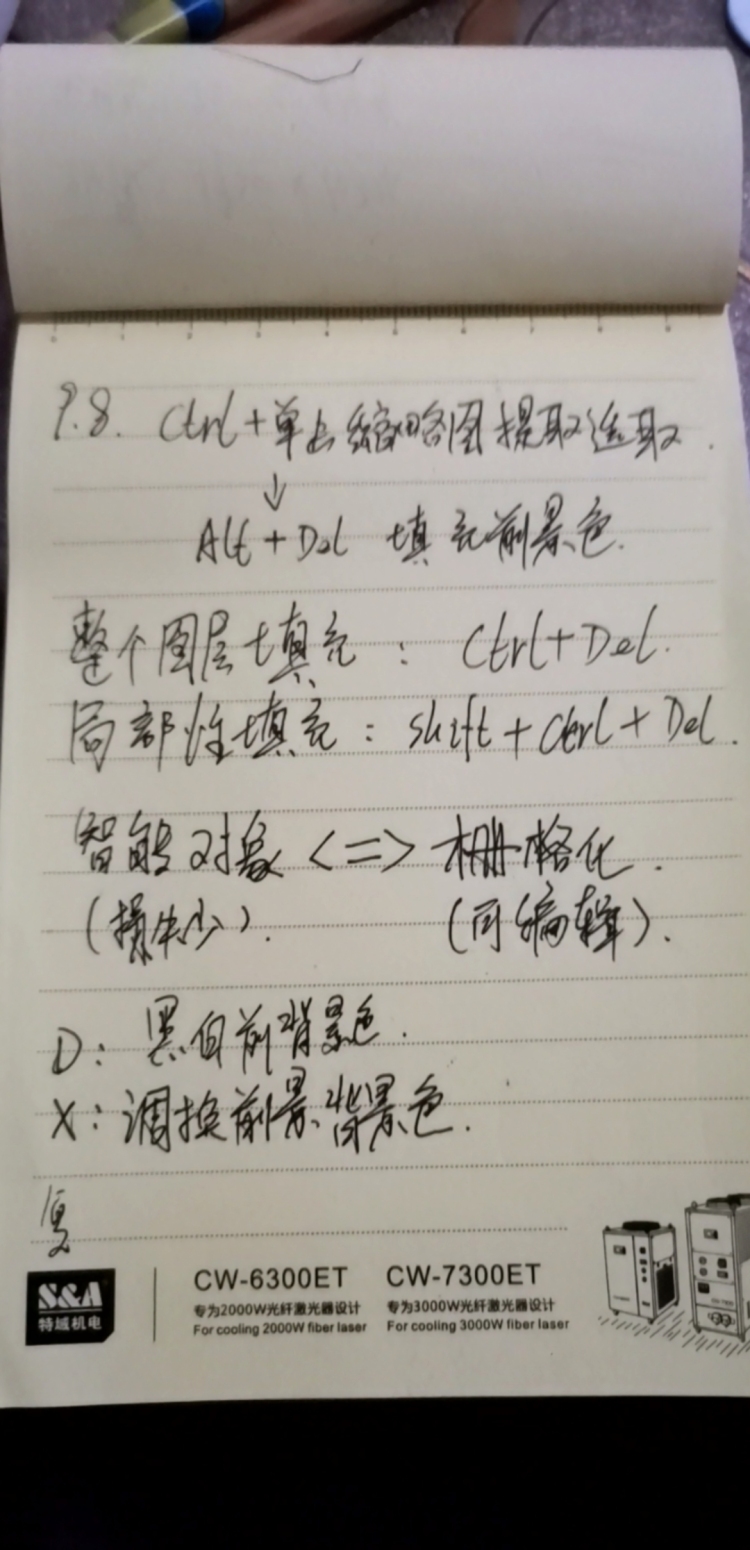 9.8. Ctrl+单击缩略图提取选取.
↓
Alt+Del 填充前景色.
整个图层填充: Ctrl+Del.
局部性填充: shift+Ctrl+Del.
智能对象 <=> 栅格化.
(损失少). (可编辑).
D: 黑白前背景色.
X: 调换前景背景色.
复
S&A
特域机电
CW-6300ET CW-7300ET
专为2000W光纤激光器设计 专为3000W光纤激光器设计
For cooling 2000W fiber laser For cooling 3000W fiber laser